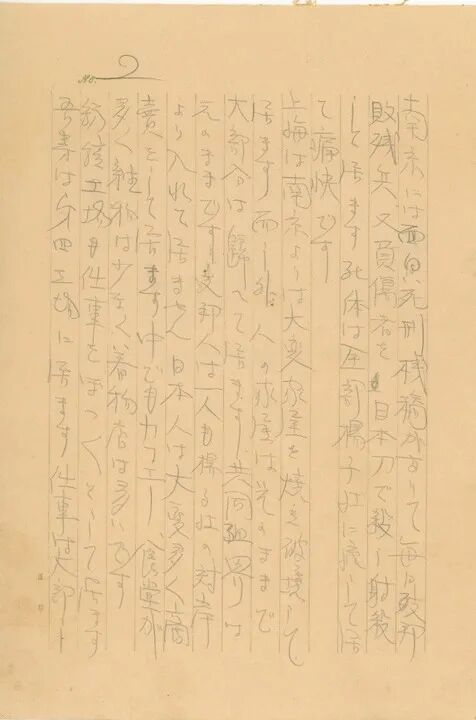 No. 2
南京には面白い死刑棧橋があつて毎日支那
敗残兵、又負傷者を日本刀で殺し射殺
して居ます 死体は全部揚子江に流して居
て痛快です
上海は南京よりは大変家屋を焼き破壊して
居ます 而し外人の家屋はそのままで
大部分は歸へて居ます 共同租界は
元のままです 支那人は一人も揚子江の対岸
より入れて居ません 日本人は大変多く商
賣をして居ます 中でもカフエー、食堂が
多く雑物は少なく着物店は多いです
紡績工場も仕事をぼつぼつとして居ます
吾等は 四工場に居ます 仕事は大部